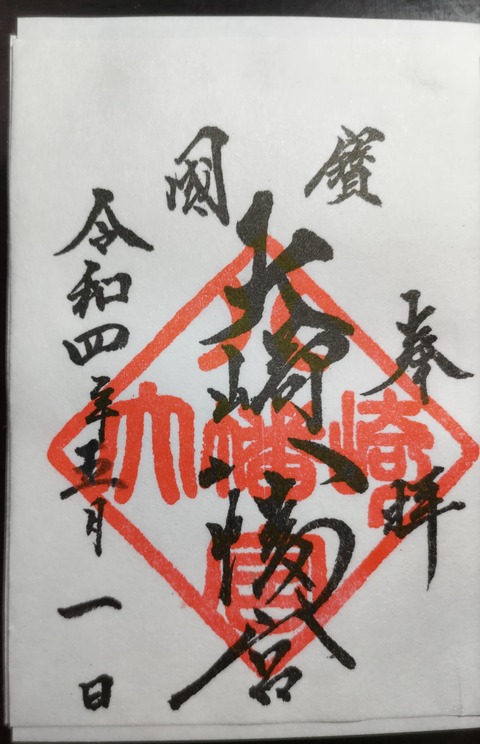 奉拝
國寳
大崎八幡宮
令和四年五月一日
大崎八幡宮